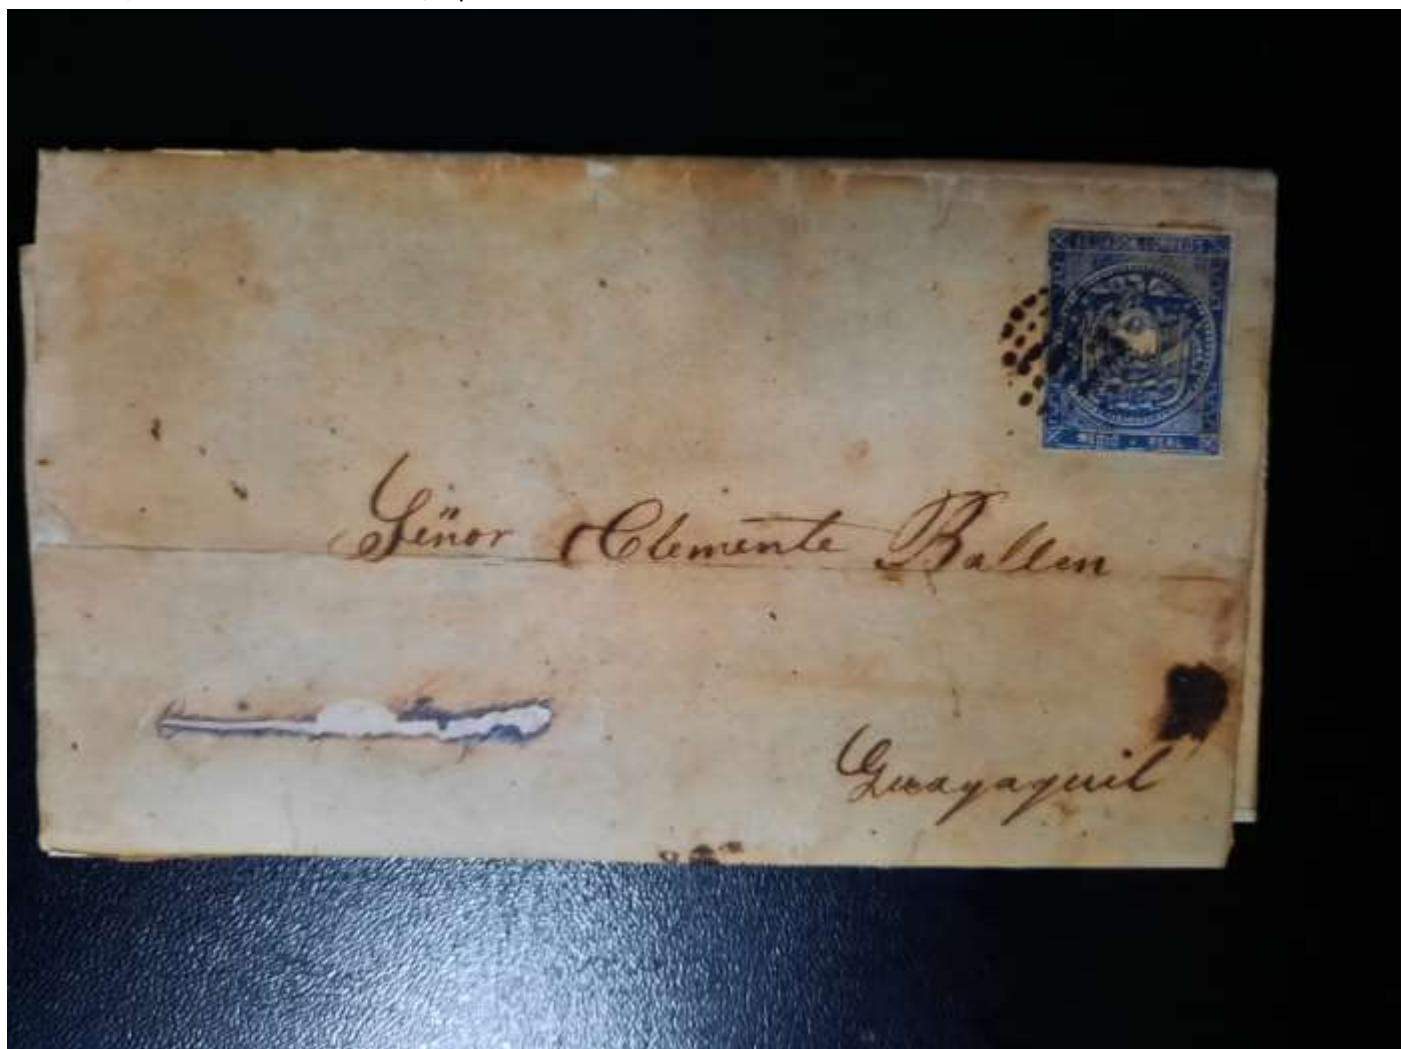 ECUADOR CORREOS
MEDIO REAL
Señor Clemente Ballen
Guayaquil